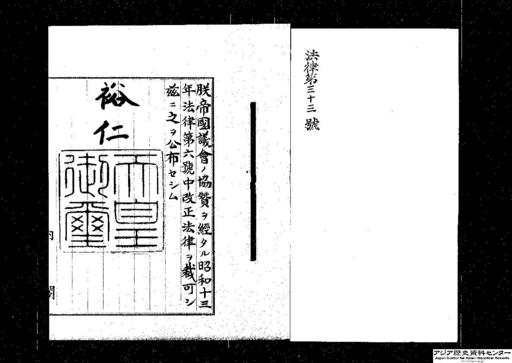 法律第三十三號
朕帝國議會ノ協贊ヲ經タル昭和十三
年法律第六號中改正法律ヲ裁可シ
茲ニ之ヲ公布セシム
裕仁
天皇
御璽
内閣
アジア歴史資料センター
Japan Center for Asian Historical Records